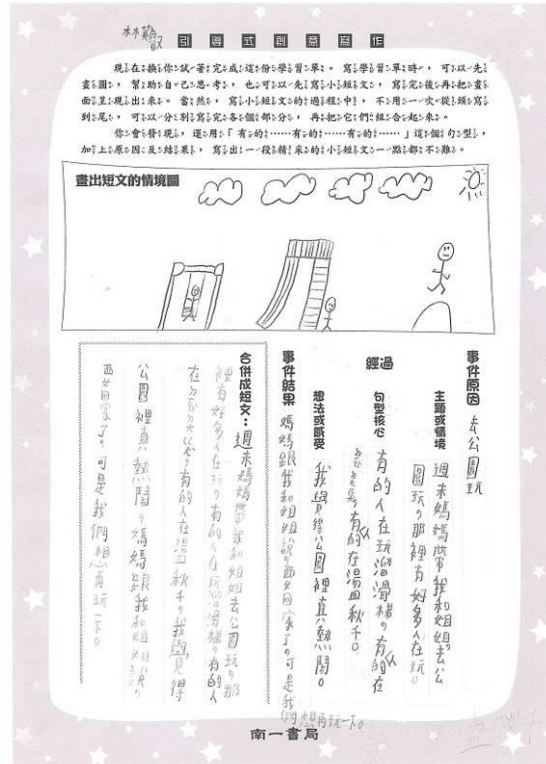 林顥叡
引導式創意寫作
現在換你試著完成這份學習單。寫學習單時,可以先
畫圖,幫助自己思考,也可以先寫小短文,寫完後再把畫
面呈現出來。當然,寫小短文的過程中,不用一次從頭寫
到尾,可以分別寫完各個部分,再把它們組合起來。
你會發現,運用「有的……有的……有的……」這個句型,
加上原因及結果,寫出一段精采的小短文一點都不難。
畫出短文的情境圖
事件原因 去公園玩
主題或情境 週末媽媽帶我和姐姐去公
園玩,那裡有好多人在玩。
經過
句型核心 有的人在玩溜滑梯,有的人在
有的人在盪秋千。
想法或感受 我覺得公園裡真熱鬧。
事件結果 媽媽跟我和姐姐說要回家了,可是我
們想再玩一下。
合併成短文:週末媽媽帶我和姐姐去公園玩,那
裡有好多人在玩,有的人在玩溜滑梯,有的人
在ㄆㄠˇㄅㄨˋ,有的人在盪秋千,我覺得
公園裡真熱鬧,媽媽跟我和姐姐說
要回家了,可是我們想再玩一下。
南一書局